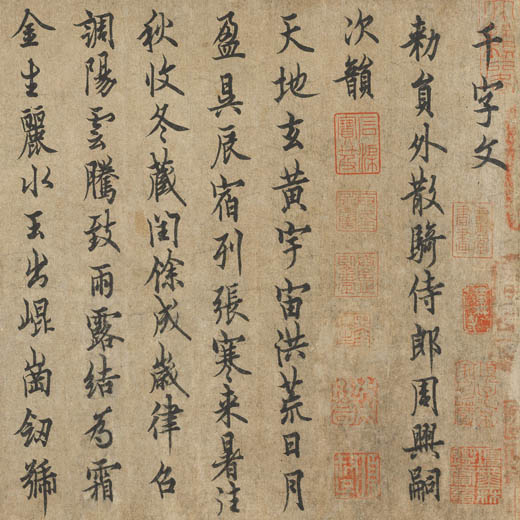 千字文
勅員外散騎侍郎周興嗣
次韻
天地玄黃宇宙洪荒日月
盈昃辰宿列張寒来暑往
秋收冬藏閏餘成歲律召
調陽雲騰致雨露結為霜
金生麗水玉出崐崗釼號